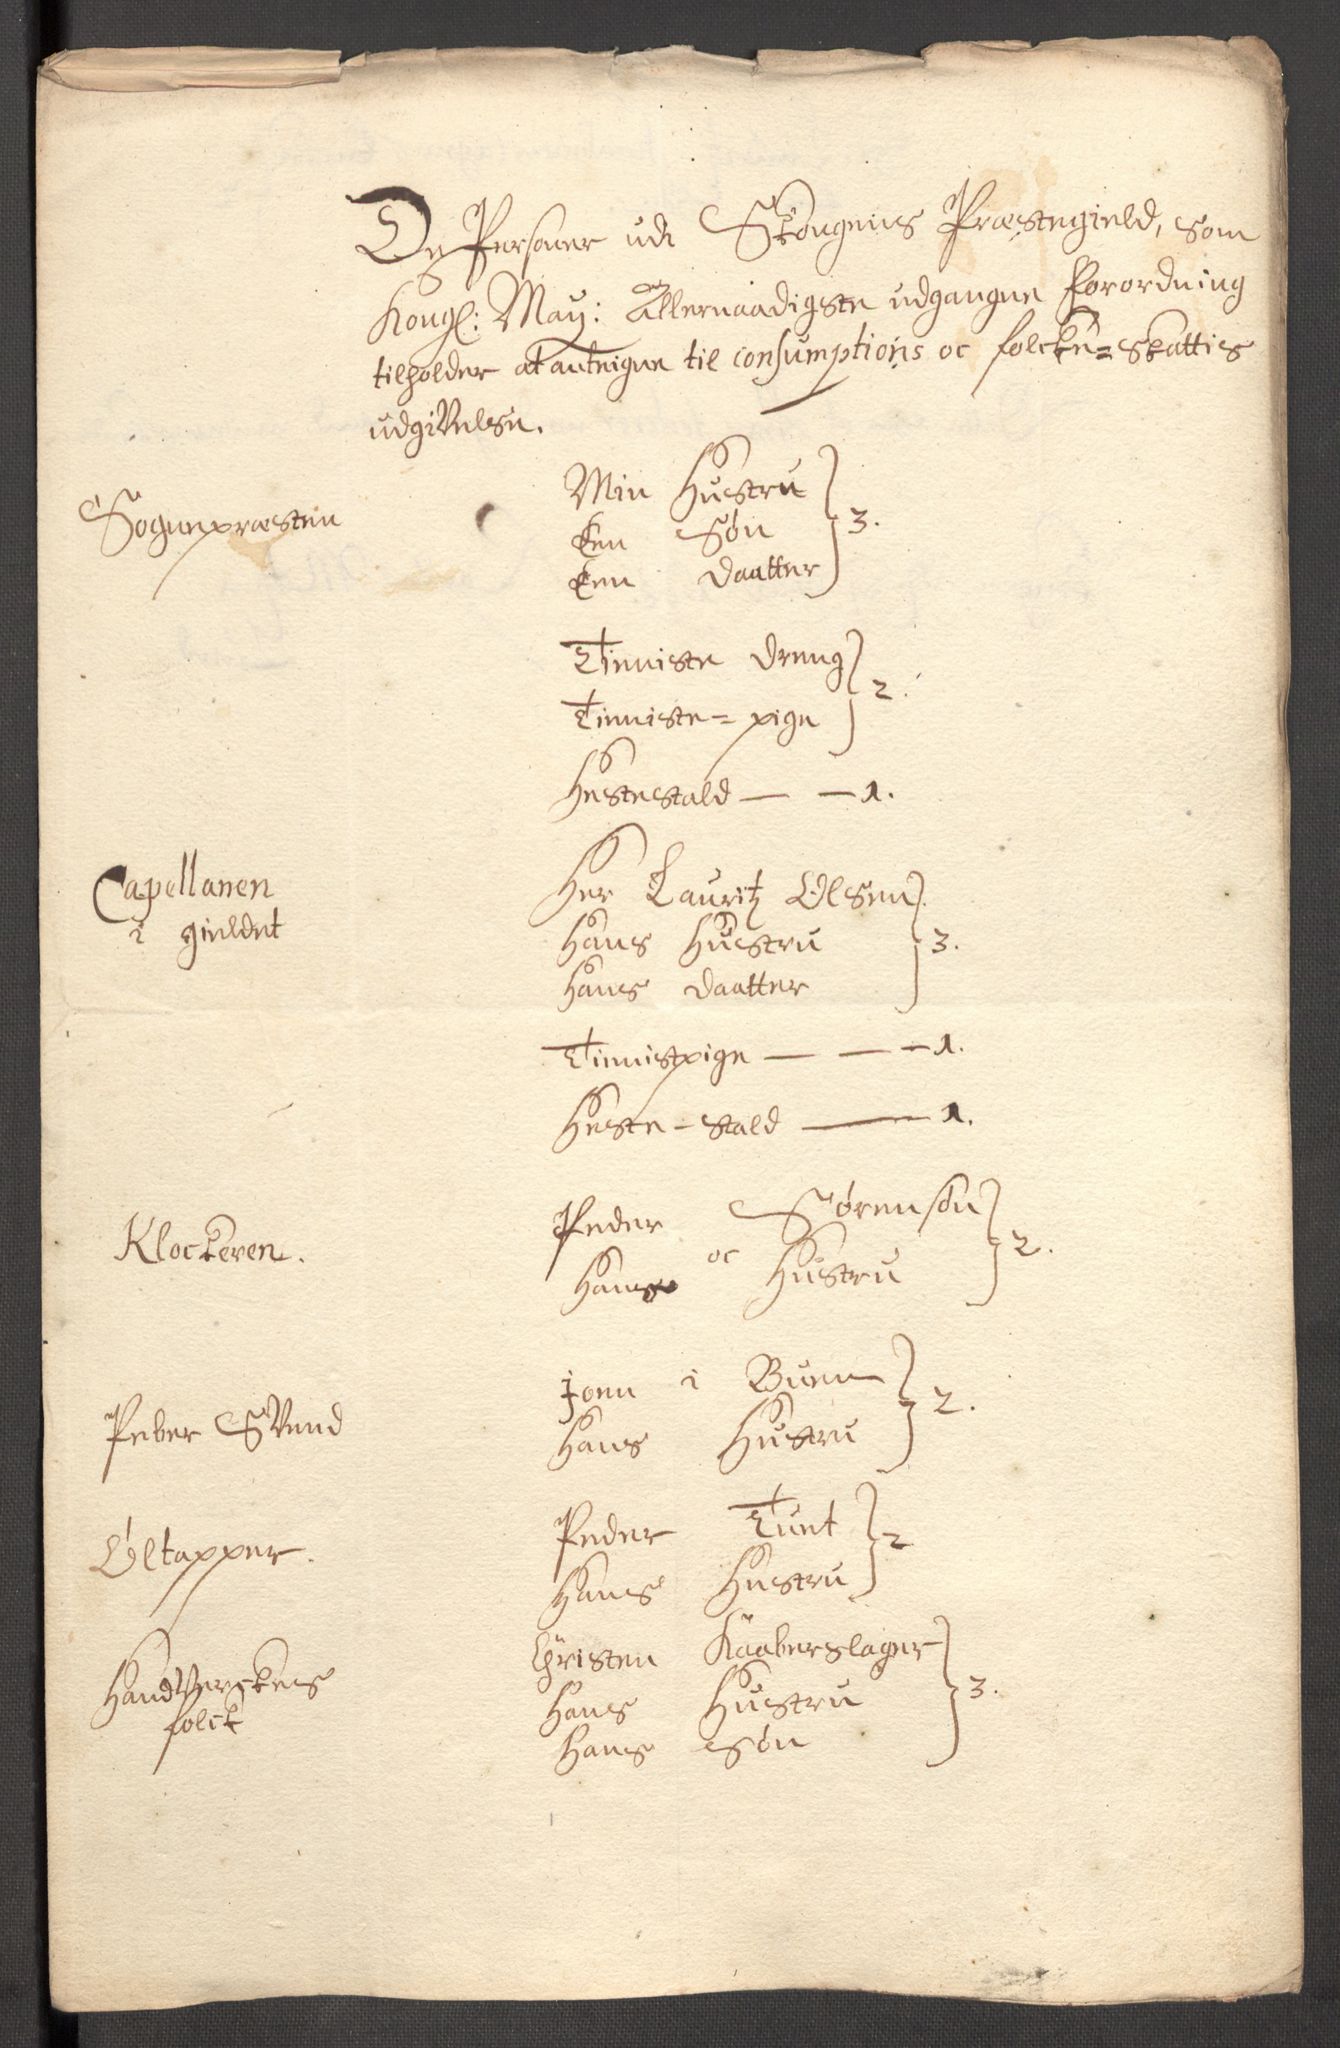 De Personer udi Skougens Præstegield, som
Kongl: May: Allernaadigste udgangne Forordning
tilholder at anteigne til consumptions oc folcke=skattis
udgivelse.
Sognepræsten
Min Hustru
Een Søn
Een Daatter
3.
Tieniste Dreng
Tieniste=pige
2.
Hestestald — — 1.
Capellanen
i gieldet
Her Lauritz Olsen
Hans Hustru
Hans Daatter
3.
Tienistpige — — — 1.
Heste-stald — 1.
Klockeren.
Peder Sørensøn
oc
Hans Hustru
2.
Peber Svend
Joen i Buen
Hans Hustru
2.
Øltapper.
Peder Tuet
Hans Hustru
2
Handverckes
folck
Christen Kaaberslager
Hans Hustru
Hans Søn
3.